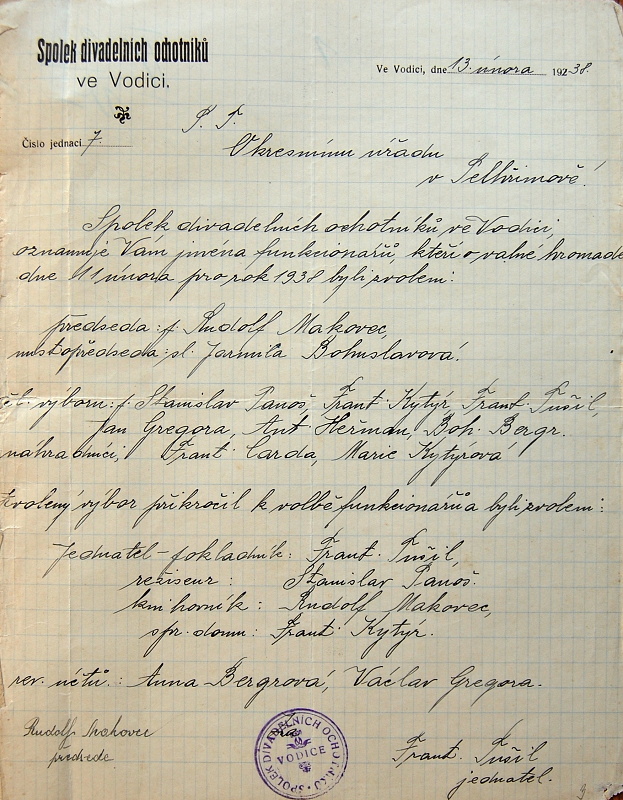 Spolek divadelních ochotníků
ve Vodici.
Ve Vodici, dne 13. února 192 38.
Číslo jednací 7.
P. T.
Okresnímu úřadu
v Pelhřimově!
Spolek divadelních ochotníků ve Vodici,
oznamuje Vám jména funkcionařů, kteří o valné hromadě
dne 11 února pro rok 1938 byli zvoleni:
předseda: p. Rudolf Makovec,
místopředseda: sl. Jarmila Bohuslavová.
čl. výboru: p. Stanislav Panoš, Frant. Kytýr, Frant. Tušil,
Jan Gregora, Ant. Heřman, Boh. Bergr.
náhradníci, Frant. Carda, Marie Kytýrová
Zvolený výbor přikročil k volbě funkcionařů a byli zvoleni:
Jednatel-pokladník: Frant. Tušil,
režiseur: Stanislav Panoš.
knihovník: Rudolf Makovec,
spr. domu: Frant. Kytýr.
rev. účtů.: Anna Bergrová, Václav Gregora.
Rudolf Makovec
předseda
za
SPOLEK DIVADELNÍCH OCHOTNÍKŮ
VODICE
Frant. Tušil
jednatel.